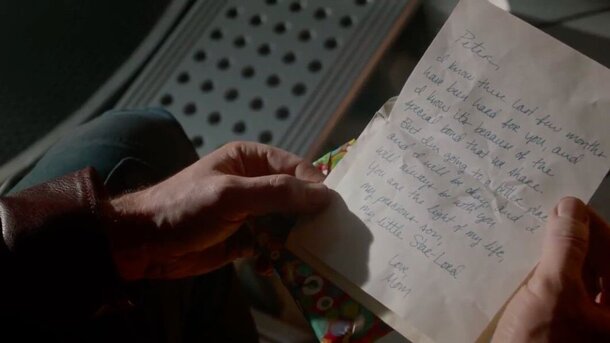 Peter,
I know these last few months
have been hard for you and
I know it's because of the
special bond that we share.
But I'm going to a better place
and I will be okay. And I
will always be with you.
You are the light of my life,
my precious son,
my little Star-Lord
Love,
Mom